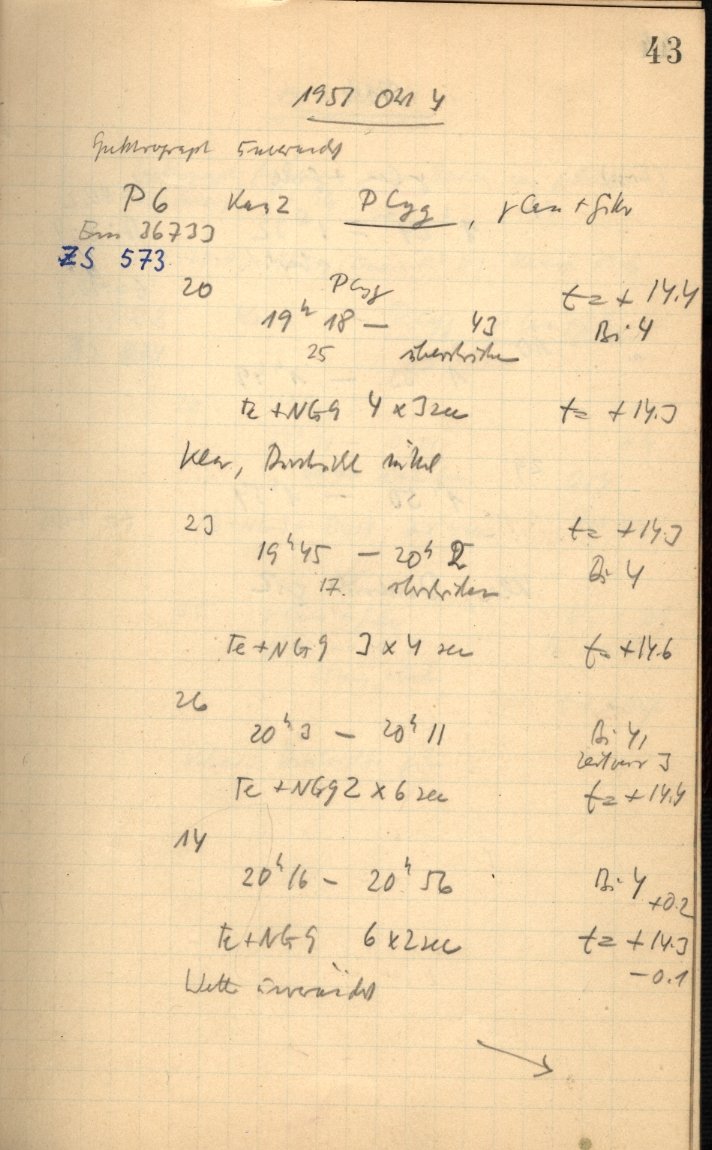 43
1957 Okt 4
Spektrograph unverändert
P6 Kam 2 P Cyg, γ Cas +
Em 36733
ZS 573
20 P Cyg t = +14.4
19h 18 — 43 Bi 4
25 überstrichen
Fe + NG9 4 x 3 sec t = +14.3
Klar, Durchsicht mittel
23 t = +14.3
19h 45 — 20h 2 Bi 4
17. überstrichen
Fe + NG9 3 x 4 sec t = +14.6
26
20h 3 — 20h 11 Bi 4,
3
Fe + NG9 2 x 6 sec t = +14.4
14
20h 16 — 20h 56 Bi 4
+0.2
Fe + NG9 6 x 2 sec t = +14.3
-0.1
unverändert